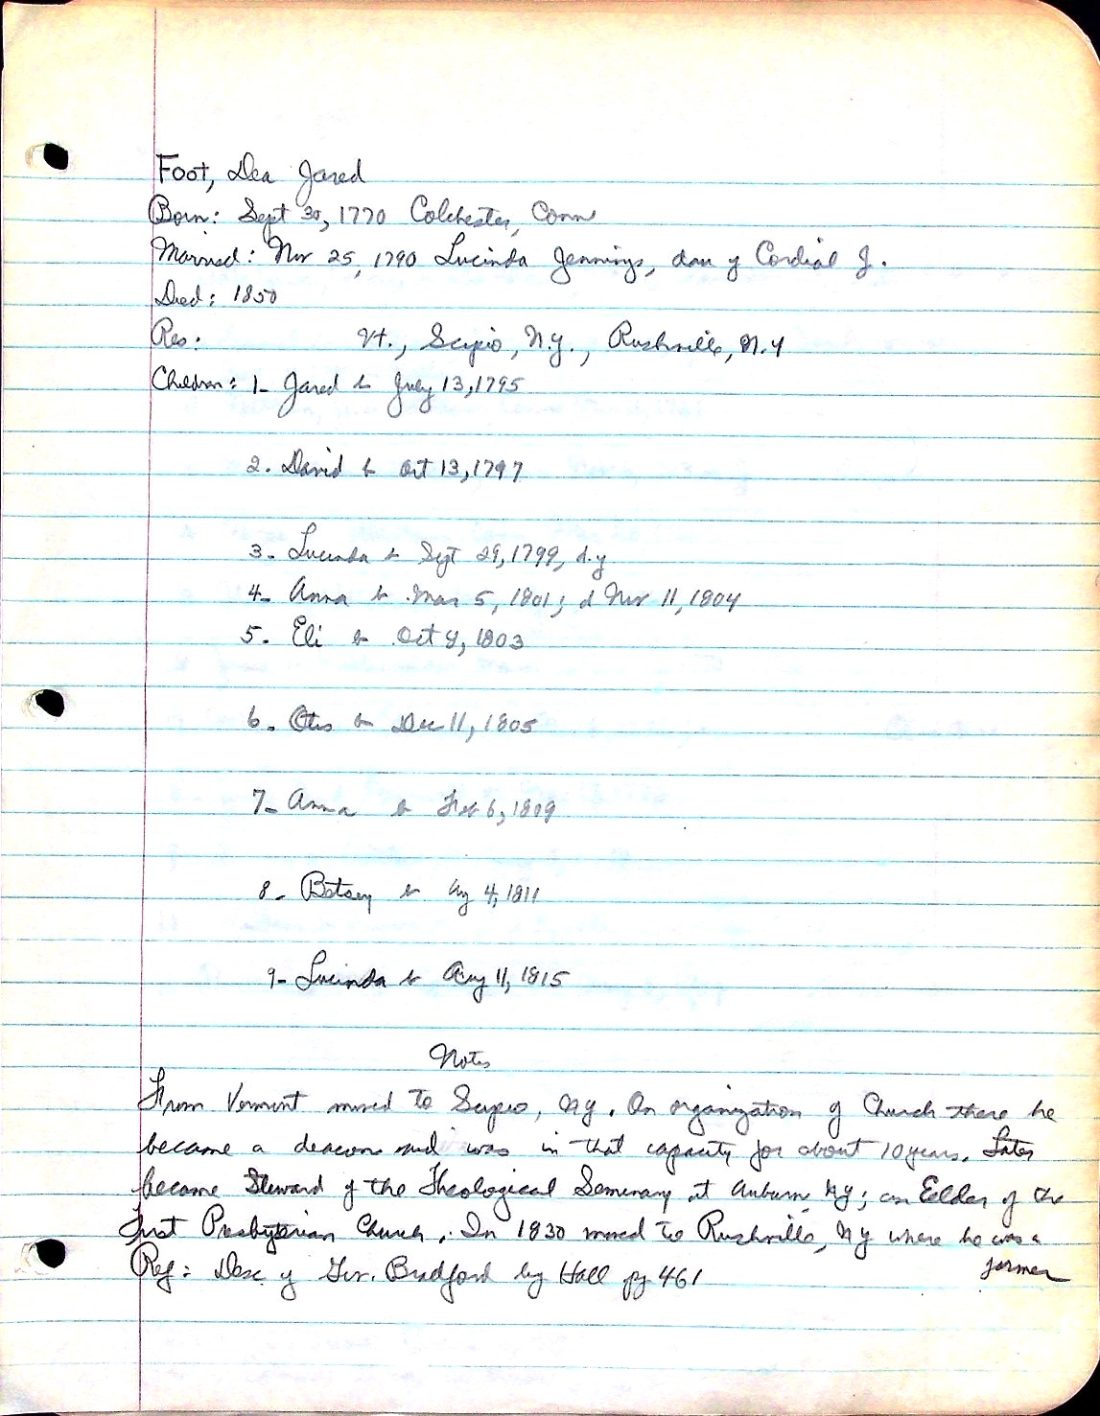 Foot, Dea Jared
Born: Sept 30, 1770 Colchester, Conn
Married: Nov 25, 1790 Lucinda Jennings, dau of Cordial J.
Died: 1850
Res: Vt., Scipio, N.Y., Rushville, N.Y
Children: 1- Jared b July 13, 1795
2. David b Oct 13, 1797
3- Lucinda b Sept 29, 1799, d.y
4- Anna b Mar 5, 1801; d Nov 11, 1804
5. Eli b Oct 9, 1803
6. Otis b Dec 11, 1805
7- Anna b Feb 6, 1809
8- Betsey b Ag 4, 1811
9- Lucinda b Aug 11, 1815
Notes
From Vermont moved to Scipio, NY. On organization of Church there he
became a deacon and was in that capacity for about 10 years. Later
became Steward of the Theological Seminary at Auburn, NY; an Eelder of the
First Presbyterian Church. In 1830 moved to Rushville, NY where he was a
farmer
Ref: Desc of Gov. Bradford by Hall pg 461